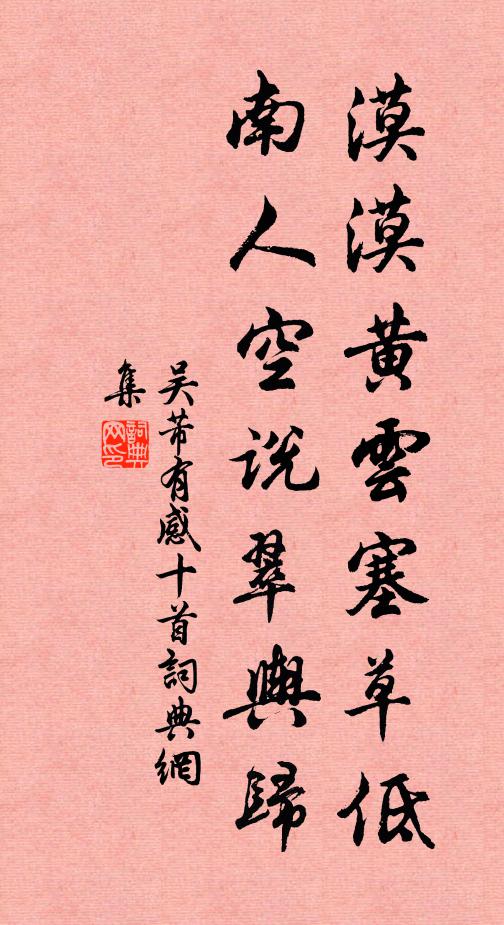 漠漠黄雲塞草低
南人空説翠輿歸
吴芾有感十首詞典網
集
詞典网印